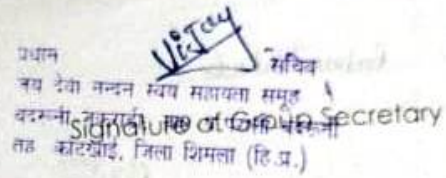 Vijay
प्रधान सचिव
जय देवा नन्दन स्वयं सहायता समूह
Signature of Group Secretary
तह कोटखाई, जिला शिमला (हि.प्र.)